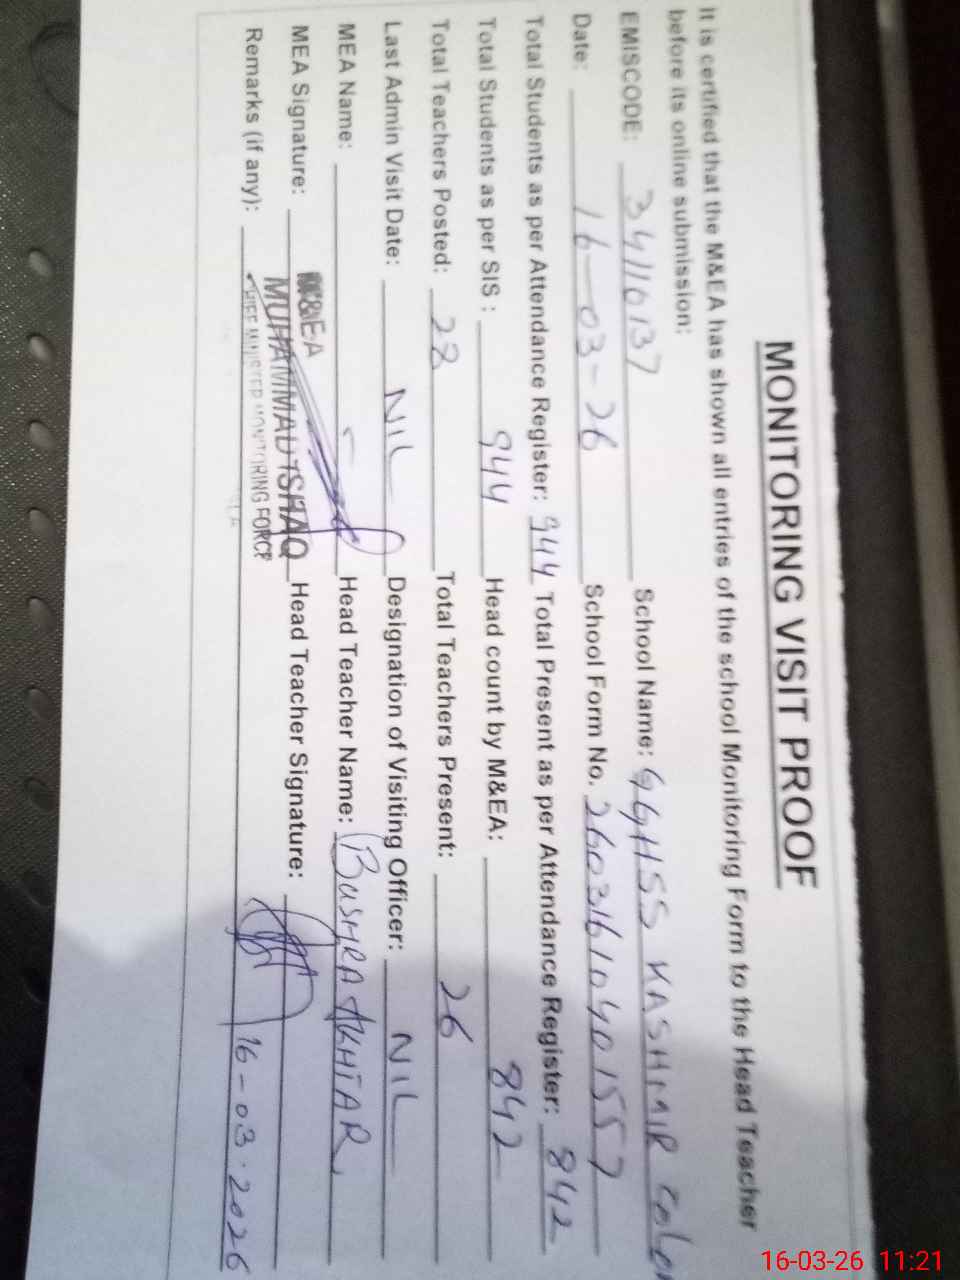 MONITORING VISIT PROOF
It is certified that the M&EA has shown all entries of the school Monitoring Form to the Head Teacher
before its online submission:
EMISCODE: 34110137 School Name: GGHSS KASHMIR
Date: 16-03-26 School Form No. 26031610401557
Total Students as per Attendance Register: 944 Total Present as per Attendance Register: 842
Total Students as per SIS : 944 Head count by M&EA: 842
Total Teachers Posted: 28 Total Teachers Present: 26
Last Admin Visit Date: NIL Designation of Visiting Officer: NIL
MEA Name: Head Teacher Name: BUSHRA AKHTAR
MEA Signature: M&EA Head Teacher Signature:
MUHAMMAD ISHAQ
Remarks (if any): CHIEF MINISTER MONITORING FORCE 16-03-2026
16-03-26 11:21